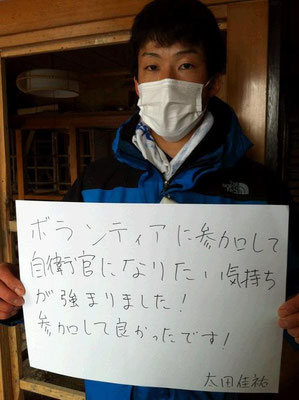 ボランティアに参加して
自衛官になりたい気持ち
が強まりました!
参加して良かったです!
太田佳祐
THE
NORTH
FACE